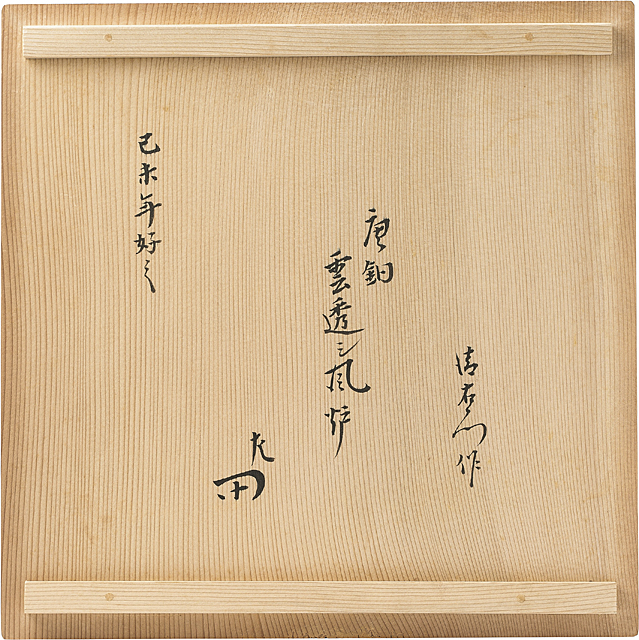 清右衛門作
唐銅
雲透シ風炉
左
己未年好之